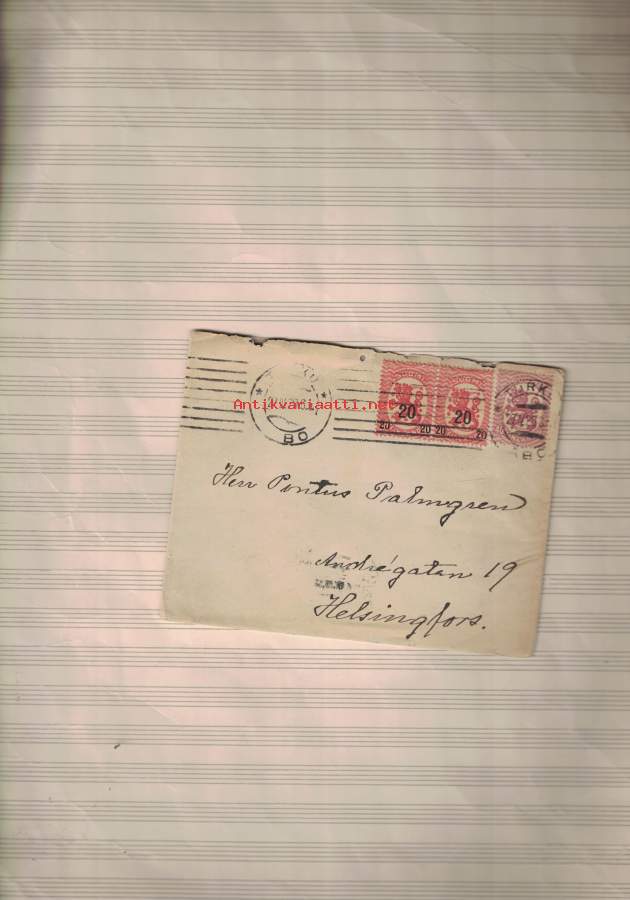 BO
Antikvariaatti.net
20 20
20 20 20 20
TURK
BO
Herr Pontus Palmgren
Andrégatan 19
Helsingfors.